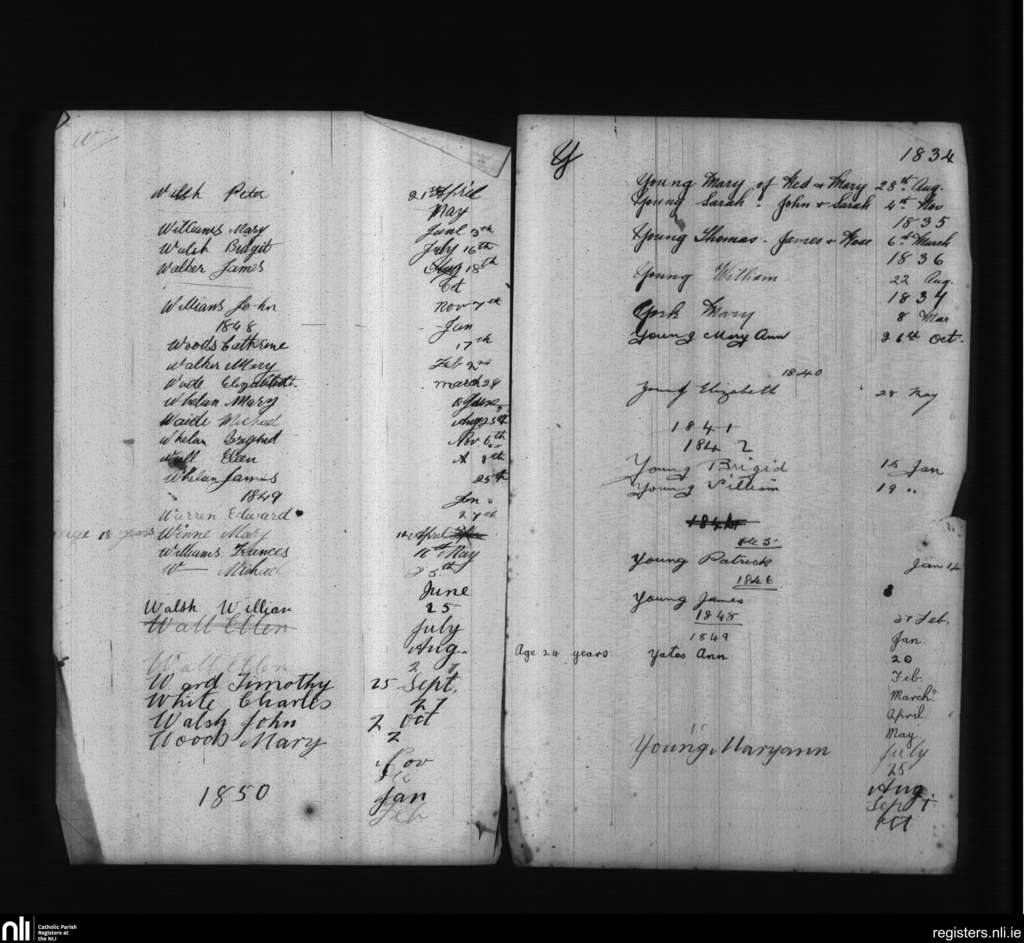 W
Walsh Peter 21st April
May
Williams Mary June 3th
Walsh Bridgit July 16th
Walker James Aug 18th
Oct
Williams John Nov 7th
1848 Jan
Woods Cathrine 17th
Walker Mary Feb 2nd
Wade Elizabeth March 29
Whelan Mary June
Waide Michael Aug 25th
Whelan Brighid Nov. 6th
Wall Elen 8th
Whelan James 25th
1849 Jan
Warren Edward 27th
age 18 years Winne Mary 12 April
Williams Frances 16th May
W— Michael 25th
June
Walsh William 25
Wall Ellen July
Aug.
Wall Ellen 2
Ward Timothy 25 Sept.
White Charles 27
Walsh John 2 Oct
Woods Mary 2
Nov
1850 Jan
Feb
Y 1834
Young Mary of Ned & Mary 28th Aug.
Young Sarah. John & Sarah 4th Nov
1835
Young Thomas. James & Rose 6th March
1836
Young William 22 Aug.
1837
York Mary 8 Mar
Young Mary Ann 26th Oct.
1840
Young Elizabeth 28 May
1841
1842
Young Brigid 15 Jan
Young William 19 "
1844
1845
Young Patrick Jan 14
1846
Young James
1848 27 Feb.
1849 Jan.
Age 24 years Yates Ann 20
Feb.
March
April
May
Young Maryann July
25
Aug
Sept
Oct
nli Catholic Parish
Registers at
the NLI
registers.nli.ie